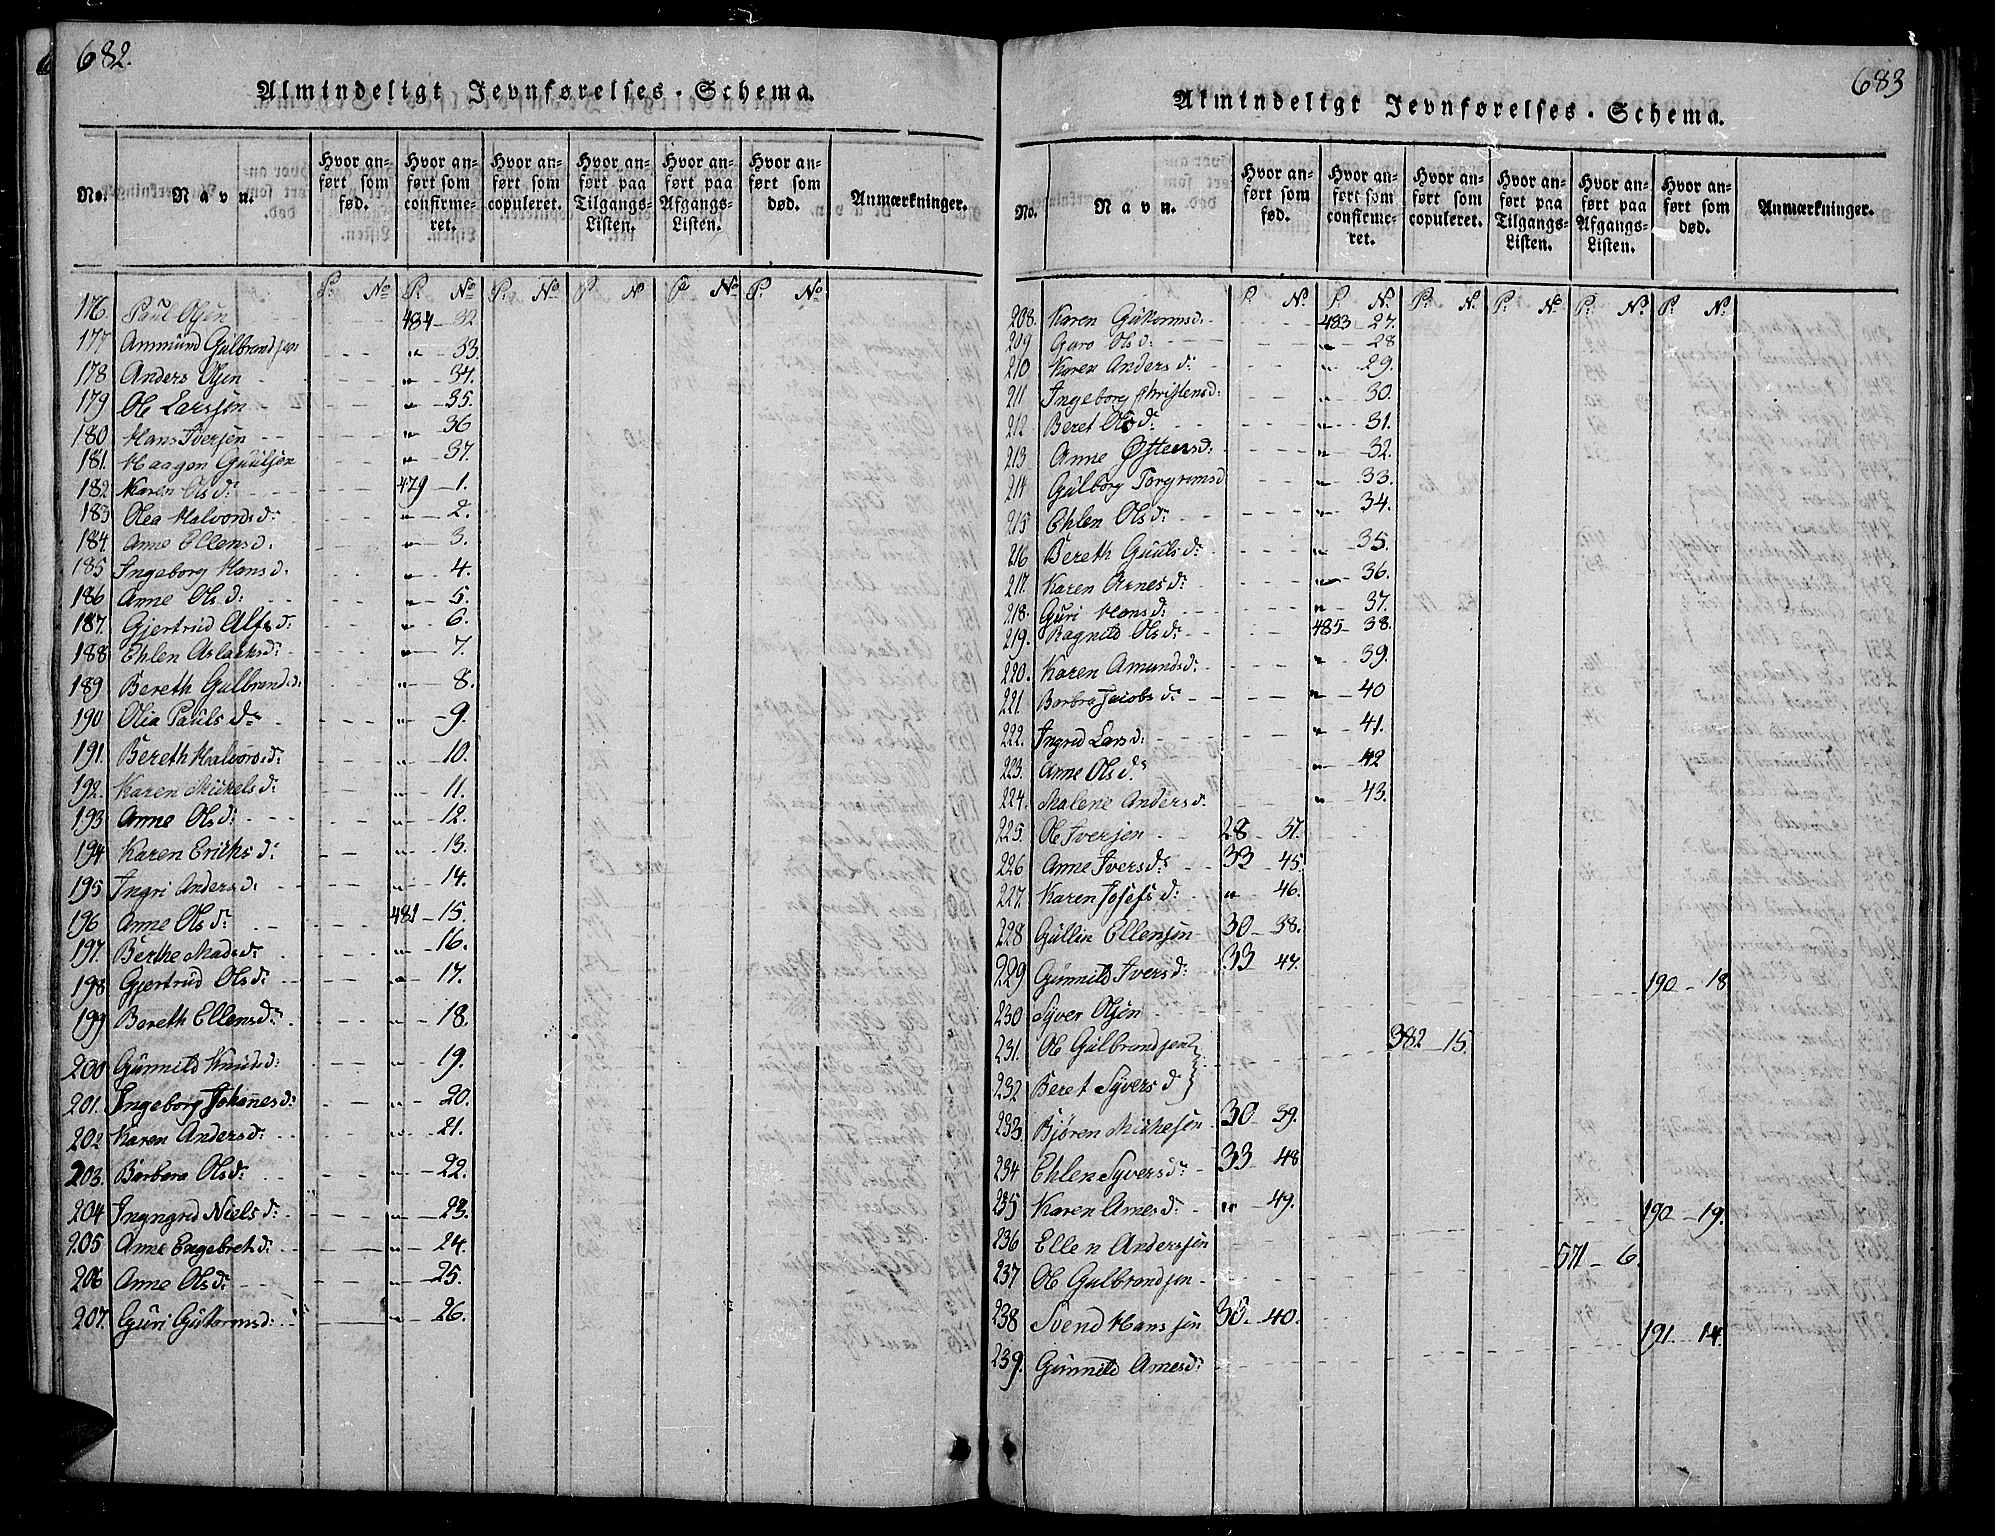 682.
Almindeligt Jevnførelses-Schema.
No. Navn. Hvor anført som fød. Hvor anført som confirmeret. Hvor anført som copuleret. Hvor anført paa Tilgangs-Listen. Hvor anført paa Afgangs-Listen. Hvor anført som død. Anmærkninger.
P. No P. No P. No P. N P No P. No
176. Paul Olsen 484 - 32
177 Ammund Gulbrandsen " 33.
178 Anders Olsen " 34.
179 Ole Larssen " 35.
180 Hans Iversen " 36
181. Haagen Guulsen " 37.
182 Karen Olsd: 479 - 1.
183 Olea Halvordsd: " 2.
184 Anne Ellensd. " 3.
185 Ingeborg Hansd. " 4.
186 Anne Olsd: " 5.
187. Gjertrud Alfsd: " 6.
188 Ehlen Aslachsd: " 7.
189 Bereth Gulbrandsd: " 8.
190 Olia Paulsd: " 9.
191. Bereth Halvorsd: " 10.
192. Karen Mickelsd: " 11.
193 Anne Olsd: " 12.
194 Karen Erichsd: " 13.
195 Ingri Andersd: " 14.
196 Anne Olsd: 481 - 15.
197. Berthe Madsd: " 16.
198 Gjertrud Olsd: " 17.
199 Bereth Ellensd: " 18.
200 Gunnild Knudsd: " 19.
201. Ingeborg Johanesd: " 20.
202 Karen Andersd: " 21.
203. Barbara Olsd: " 22.
204 Ingngrid Nielsd: " 23.
205 Anne Engebretd: " 24.
206 Anne Olsd: " 25.
207. Guri Guttormsd: " 26.
683
Almindeligt Jevnførelses-Schema.
No. Navn. Hvor anført som fød. Hvor anført som confirmeret. Hvor anført som copuleret. Hvor anført paa Tilgangs-Listen. Hvor anført paa Afgangs-Listen. Hvor anført som død. Anmærkninger.
P. N. P. N. P. N. P. No P. No P. No
208. Karen Guttormsd: 483 - 27.
209 Guro Olsd: " 28
210 Karen Andersd: " 29.
211 Ingeborg Christensd: " 30.
212 Beret Olsd: " 31.
213 Anne Østensd: " 32.
214 Gulborg Torgrimsd " 33.
215 Ehlen Olsd: " 34.
216 Bereth Guulsd: " 35.
217. Karen Arnesd: " 36.
218. Guri Hansd: " 37.
219. Ragnild Olsd: 485 - 38.
220. Karen Amundsd: " 39.
221. Barbra Jacobsd: " 40
222. Ingrid Larsd: " 41.
223. Anne Olsd: " 42
224. Malene Andersd: " 43.
225. Ole Iversen 28 - 37.
226 Anne Iversd: 33 - 45.
227. Karen Josefsd: " 46.
228 Gullin Ellensen 30 - 38.
229 Gunnild Iversd: 33 - 47.
230 Syver Olsen 190 - 18
231. Ole Gulbrandsen 382 - 15.
232 Beret Syversd
233. Bjøren Mickelsen 30 - 39.
234 Ehlen Syversd: 33 - 48
235 Karen Arnesd: " 49.
236 Ellen Anderssen 190 - 19.
237 Ole Gulbrandsen 571 - 6.
238 Svend Hanssen 30 - 40.
239. Gunnild Arnesd: 191 - 14.